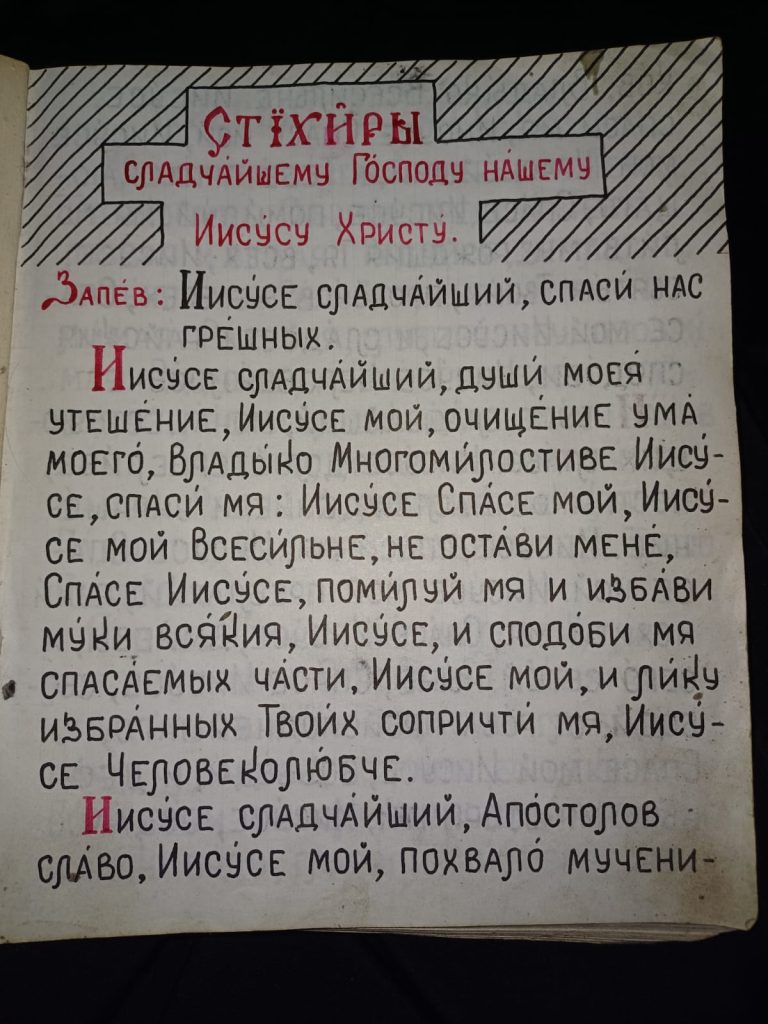 Стїхи̑ры
сладча́йшему Го́споду на́шему
Иису́су Христу́.
Запе́в: Иису́се сладча́йший, спаси́ нас
гре́шных.
Иису́се сладча́йший, души́ моея́
утеше́ние, Иису́се мой, очище́ние ума́
моего́, Влады́ко Многоми́лостиве Иису́-
се, спаси́ мя: Иису́се Спа́се мой, Иису́-
се мой Всеси́льне, не оста́ви мене́,
Спа́се Иису́се, поми́луй мя и изба́ви
му́ки вся́кия, Иису́се, и сподо́би мя
спаса́емых ча́сти, Иису́се мой, и ли́ку
избра́нных Твои́х сопричти́ мя, Иису́-
се Человеколю́бче.
Иису́се сладча́йший, Апо́столов
сла́во, Иису́се мой, похвало́ мучени-